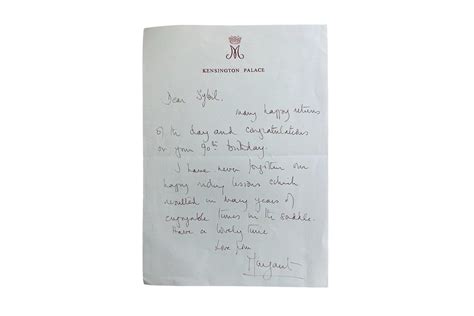 M
KENSINGTON PALACE
Dear Sybil.
many happy returns
of the day and congratulations
on your 90th birthday.
I have never forgotten our
happy riding lessons which
resulted in many years of
enjoyable times in the saddle.
Have a lovely time.
Love from
Margaret